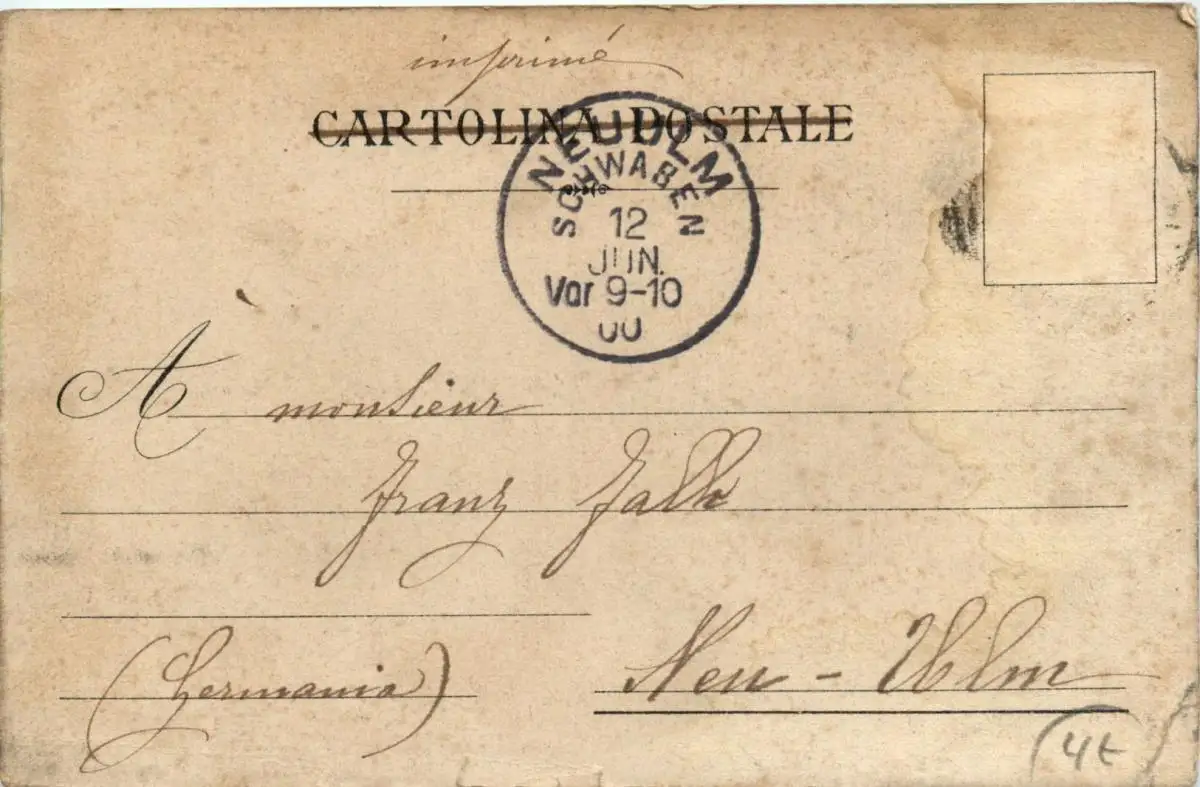 imprimé
CARTOLINA POSTALE
NEUULM
SCHWABEN
12
JUN.
Vor 9-10
00
A monsieur
Franz
(Germania)
Neu-Ulm